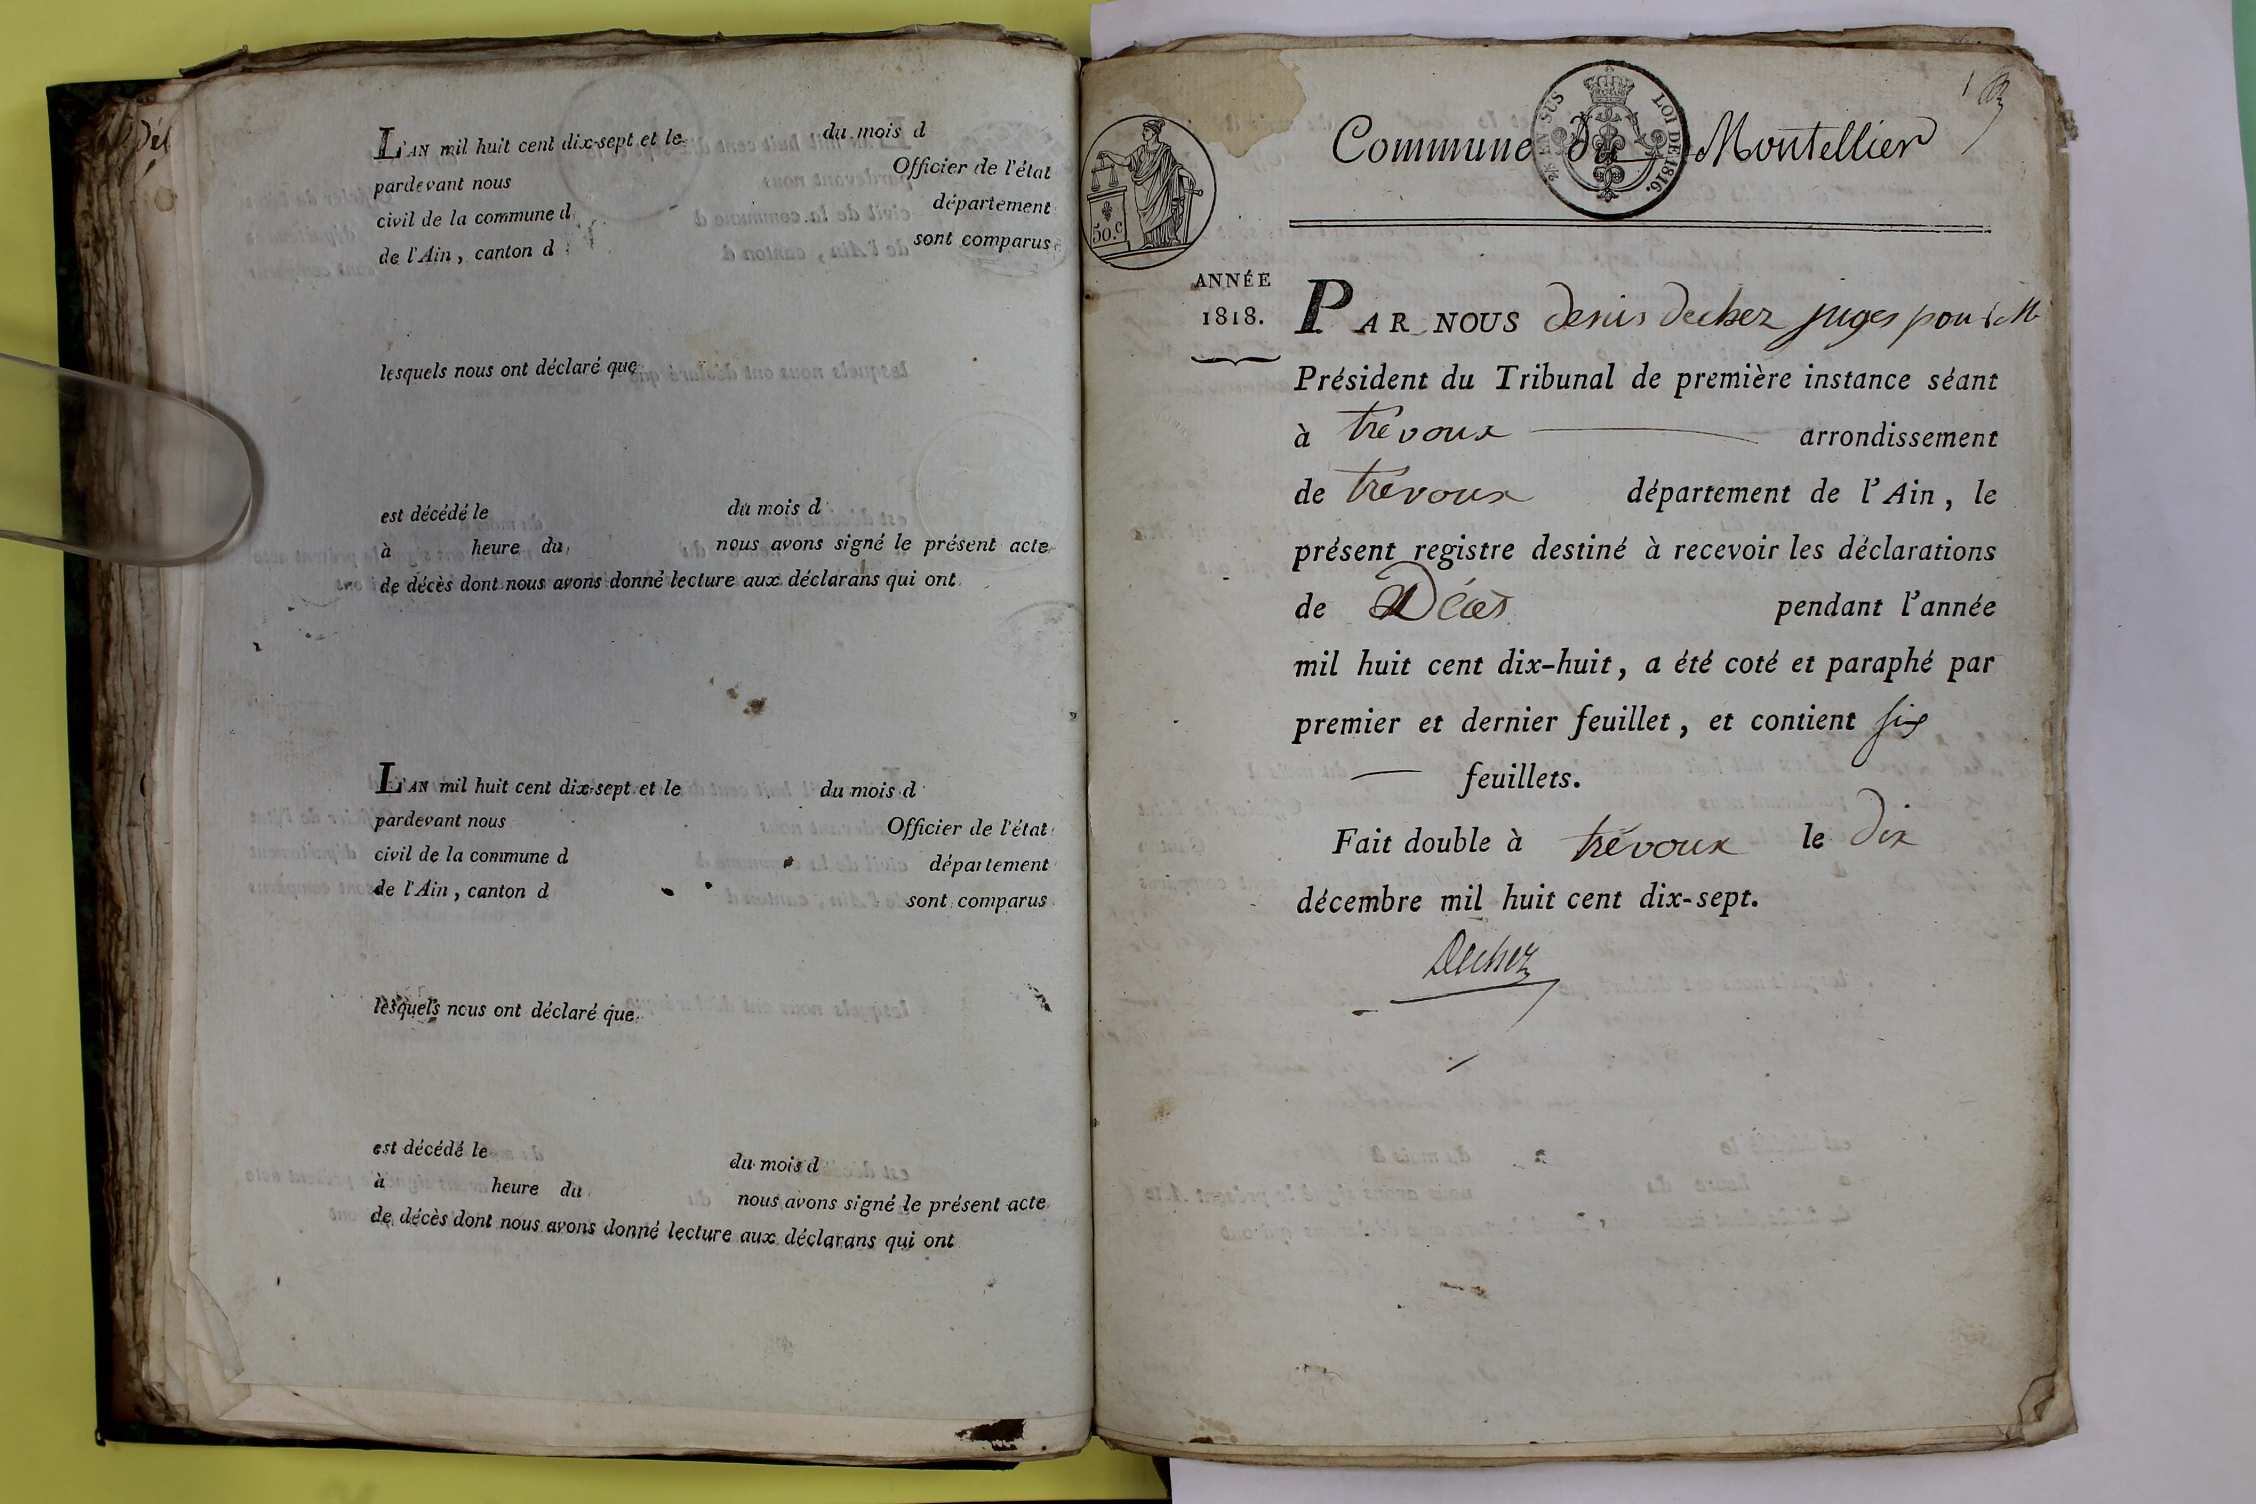 Dé
L'AN mil huit cent dix-sept et le du mois d
pardevant nous Officier de l'état
civil de la commune d département
de l'Ain, canton d sont comparus
lesquels nous ont déclaré que
est décédé le du mois d
à heure du nous avons signé le présent acte
de décès dont nous avons donné lecture aux déclarans qui ont
L'AN mil huit cent dix-sept et le du mois d
pardevant nous Officier de l'état
civil de la commune d département
de l'Ain, canton d sont comparus
lesquels nous ont déclaré que
est décédé le du mois d
à heure du nous avons signé le présent acte
de décès dont nous avons donné lecture aux déclarans qui ont
1
EN SUS LOI DE 1816.
Commune du Montellier
50.c
ANNÉE
1818.
PAR NOUS Denis Dechez juges pour le
Président du Tribunal de première instance séant
à trevoux arrondissement
de trévoux département de l'Ain, le
présent registre destiné à recevoir les déclarations
de Décès pendant l'année
mil huit cent dix-huit, a été coté et paraphé par
premier et dernier feuillet, et contient six
feuillets.
Fait double à trévoux le dix
décembre mil huit cent dix-sept.
Dechez